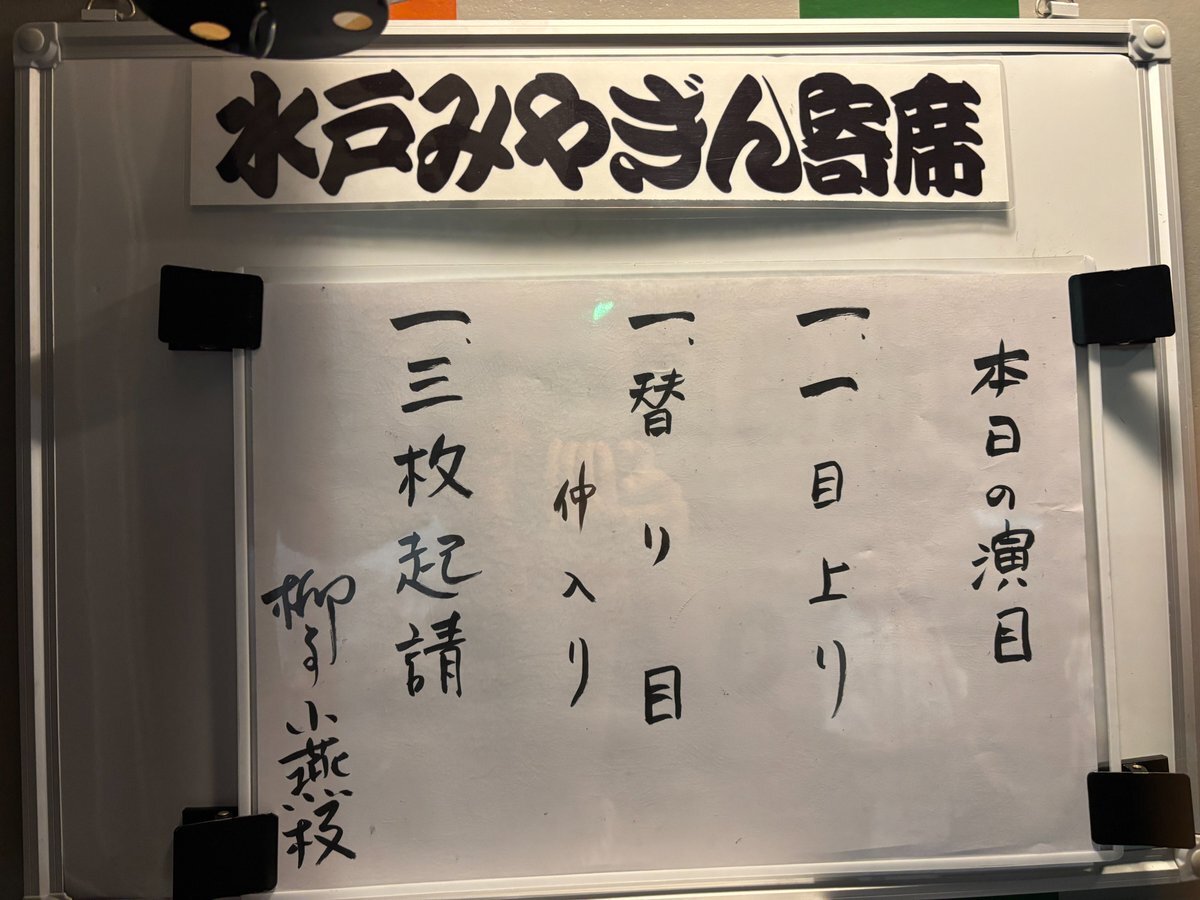 水戸みやぎん寄席
本日の演目
一、一目上り
一、替り目
仲入り
一、三枚起請
柳亭小燕枝